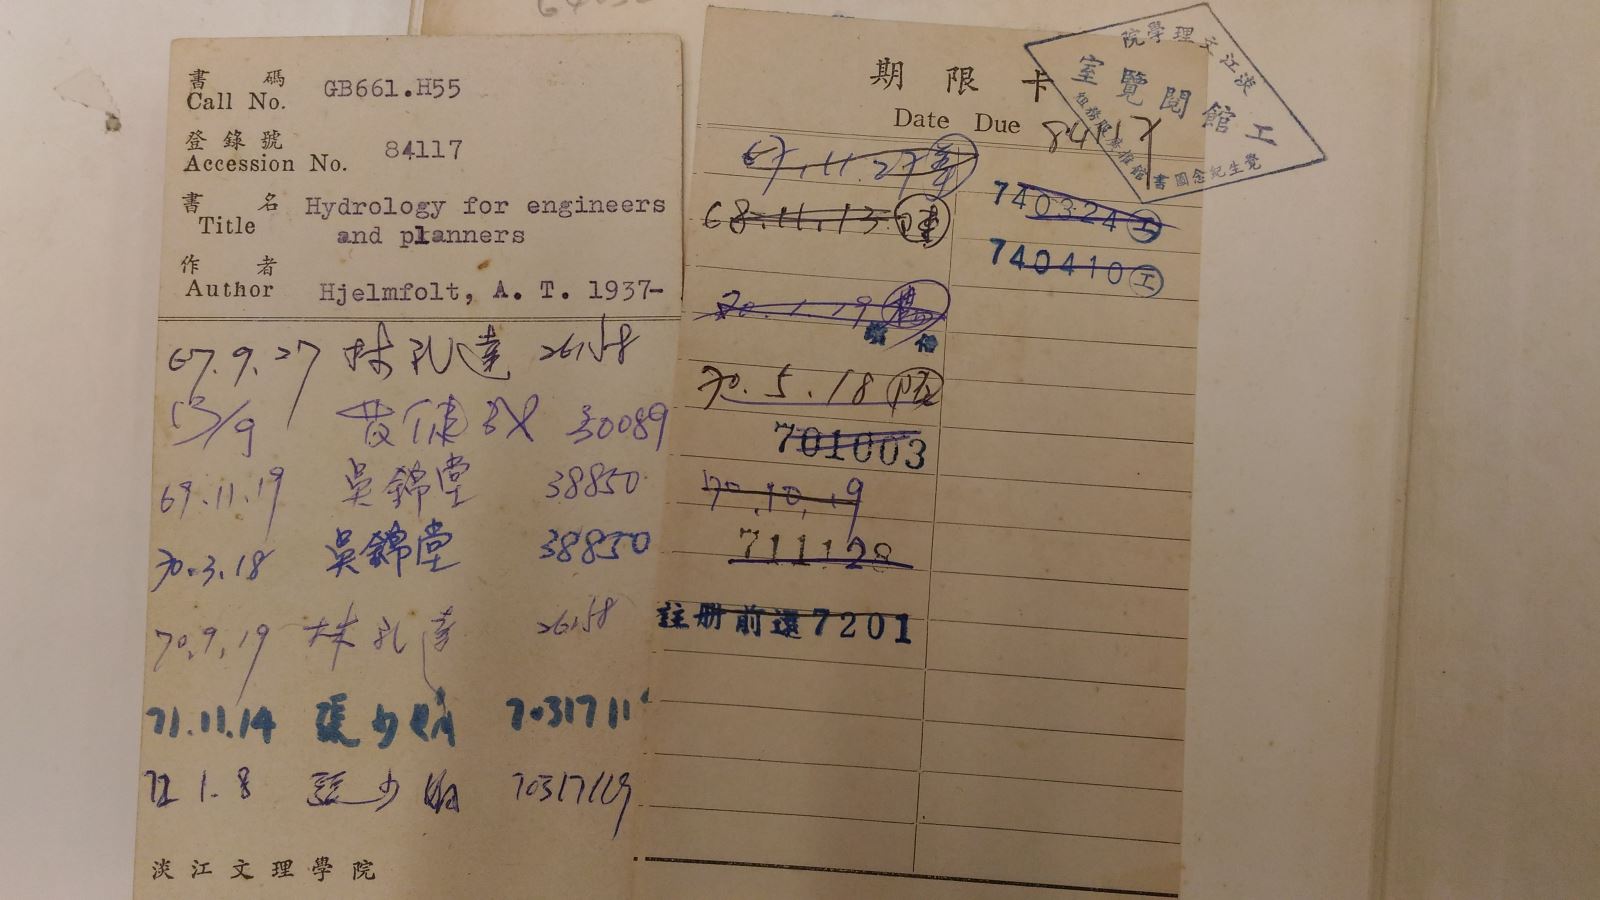 書 碼
Call No. GB661.H55
登錄號
Accession No. 84117
書 名 Hydrology for engineers
Title and planners
作 者
Author Hjelmfolt, A. T. 1937-
67.9.27 林孔達 26158
13/9 30089
69.11.19 吳錦堂 38850
70.3.18 吳錦堂 38850
70.9.19 林孔達 26158
71.11.14 張少 7031711
72 1.8 張少 70317119
淡江文理學院
期限卡
Date Due
84117
67.11.27
68.11.13
70.1.19
70.5.18
701003
70.10.19
711128
註册前還7201
740324 工
740410 工
淡江文理學院
工館閱覽室
覺生紀念圖書館